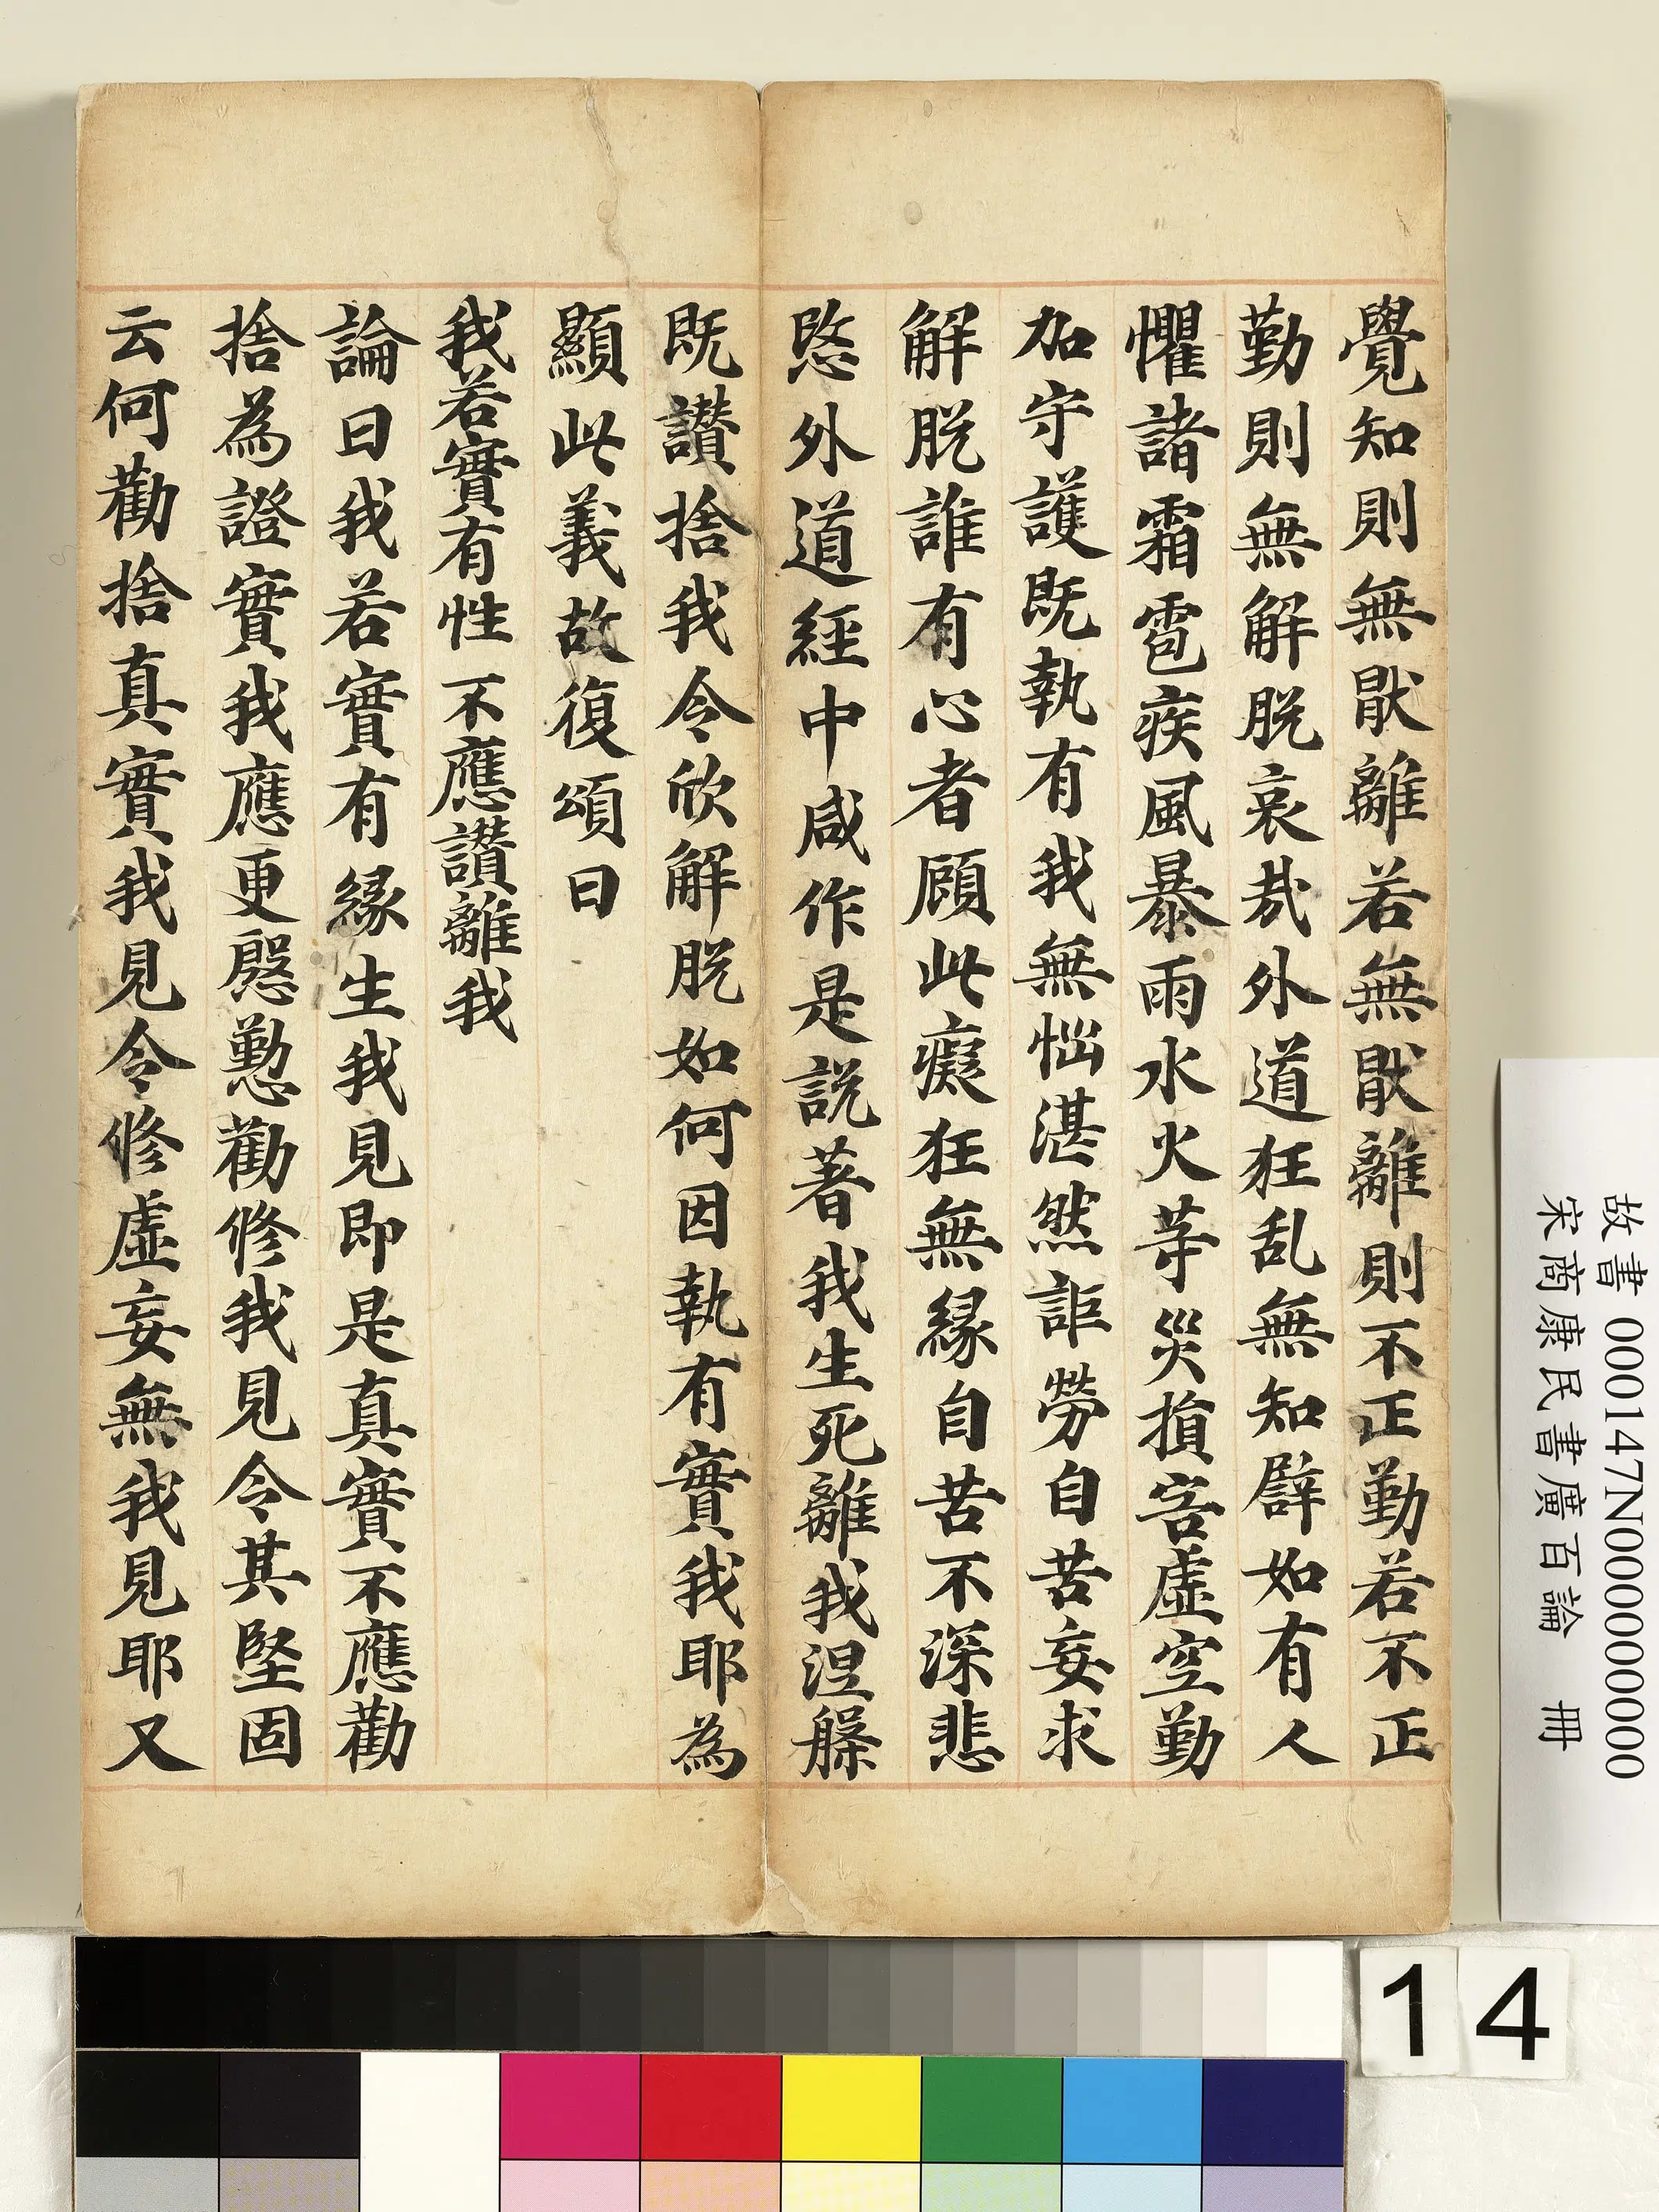 覺知則無猒離若無猒離則不正勤若不正
勤則無解脫哀哉外道狂乱無知辟如有人
懼諸霜雹疾風暴雨水火等災損害虛空勤
加守護既執有我無惱湛然詎勞自苦妄求
解脫誰有心者顧此癡狂無緣自苦不深悲
愍外道經中咸作是說著我生死離我涅槃
既讚捨我令欣解脫如何因執有實我耶為
顯此義故復頌曰
我若實有性 不應讚離我
論曰我若實有緣生我見即是真實不應勸
捨為證實我應更慇懃勸修我見令其堅固
云何勸捨真實我見令修虛妄無我見耶又
故書 000147N000000000
宋商康民書廣百論 冊
14